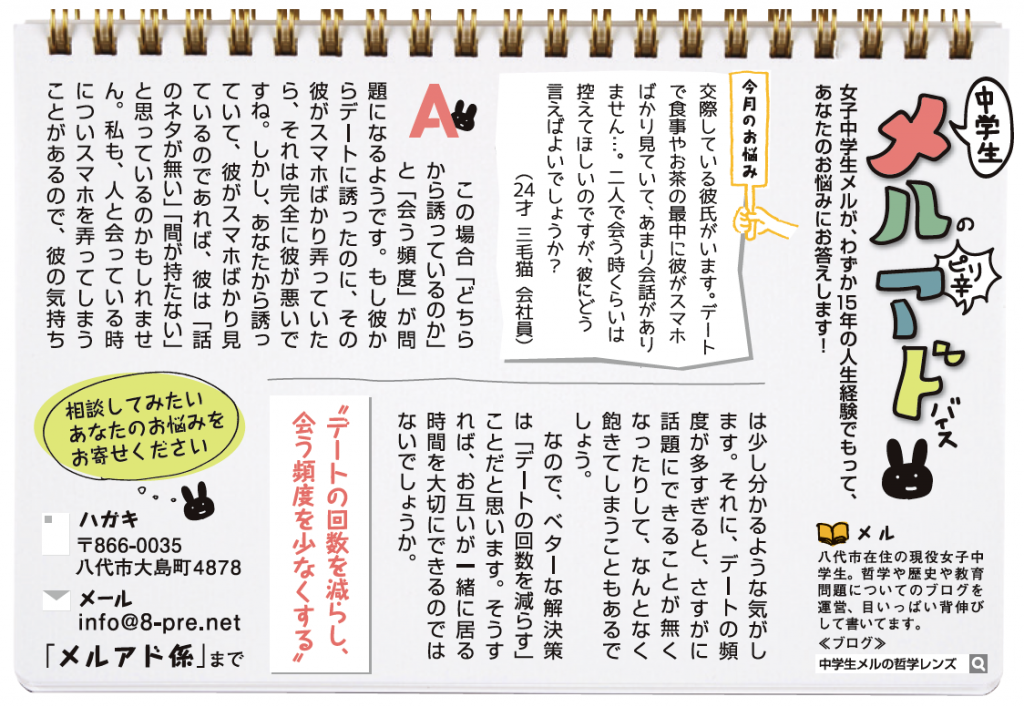 中学生
メルの
ピリ辛
アドバイス
女子中学生メルが、わずか15年の人生経験でもって、
あなたのお悩みにお答えします！
メル
八代市在住の現役女子中
学生。哲学や歴史や教育
問題についてのブログを
運営、目いっぱい背伸び
して書いてます。
≪ブログ≫
中学生メルの哲学レンズ
今月のお悩み
交際している彼氏がいます。デート
で食事やお茶の最中に彼がスマホ
ばかり見ていて、あまり会話があり
ません…。二人で会う時くらいは
控えてほしいのですが、彼にどう
言えばよいでしょうか？
（24才 三毛猫 会社員）
A
この場合「どちら
から誘っているのか」
と「会う頻度」が問
題になるようです。もし彼か
らデートに誘ったのに、その
彼がスマホばかり弄っていた
ら、それは完全に彼が悪いで
すね。しかし、あなたから誘っ
ていて、彼がスマホばかり見
ているのであれば、彼は「話
のネタが無い」「間が持たない」
と思っているのかもしれませ
ん。私も、人と会っている時
についスマホを弄ってしまう
ことがあるので、彼の気持ち
は少し分かるような気がし
ます。それに、デートの頻
度が多すぎると、さすがに
話題にできることが無く
なったりして、なんとなく
飽きてしまうこともあるで
しょう。
なので、ベターな解決策
は「デートの回数を減らす」
ことだと思います。そうす
れば、お互いが一緒に居る
時間を大切にできるのでは
ないでしょうか。
〝デートの回数を減らし、
会う頻度を少なくする〟
相談してみたい
あなたのお悩みを
お寄せください
ハガキ
〒866-0035
八代市大島町4878
メール
info@8-pre.net
「メルアド係」まで